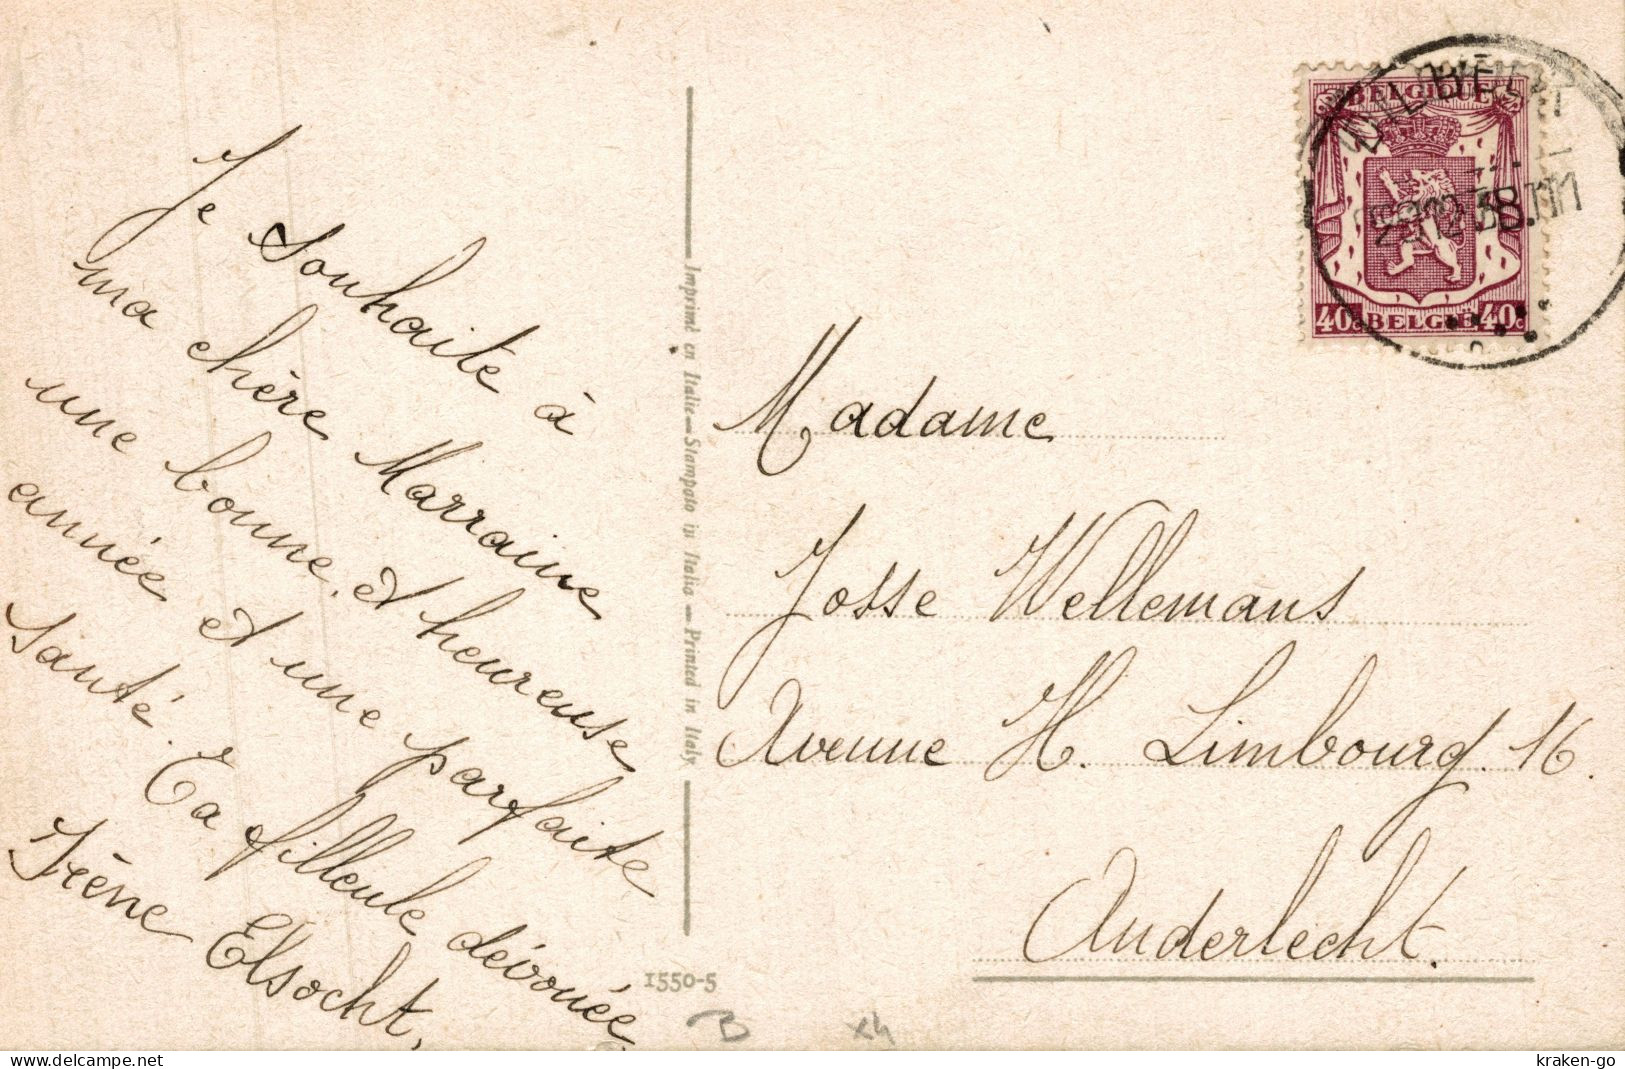 Je souhaite à
ma chère Marraine
une bonne et heureuse
année et une parfaite
santé. Ta filleule dévouée
Irène Elsocht,
Imprimé en Italie — Stampato in Italia — Printed in Italy
1550-5
B
BELGIQUE
40c BELGIË 40c
12 38
Madame
Josse Wellemans
Avenue H. Limbourg. 16.
Anderlecht.
kraken-go